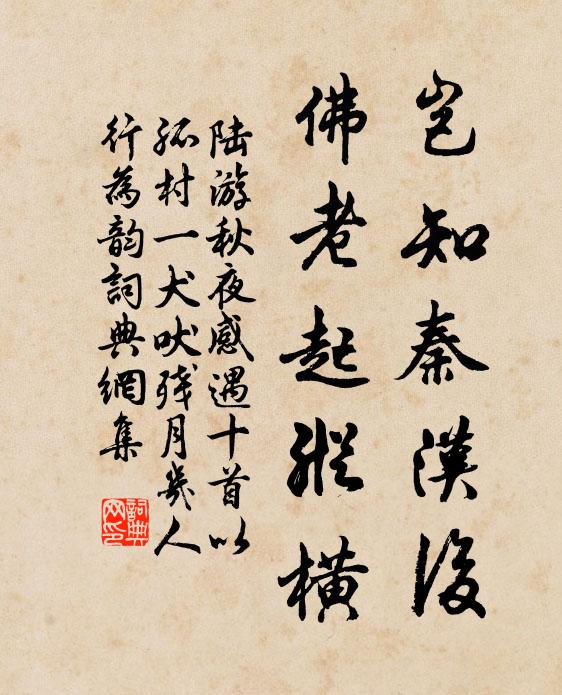 豈知秦漢後
佛老起縱橫
陆游秋夜感遇十首以
孤村一犬吠残月幾人
行為韵詞典網集
詞典
网印